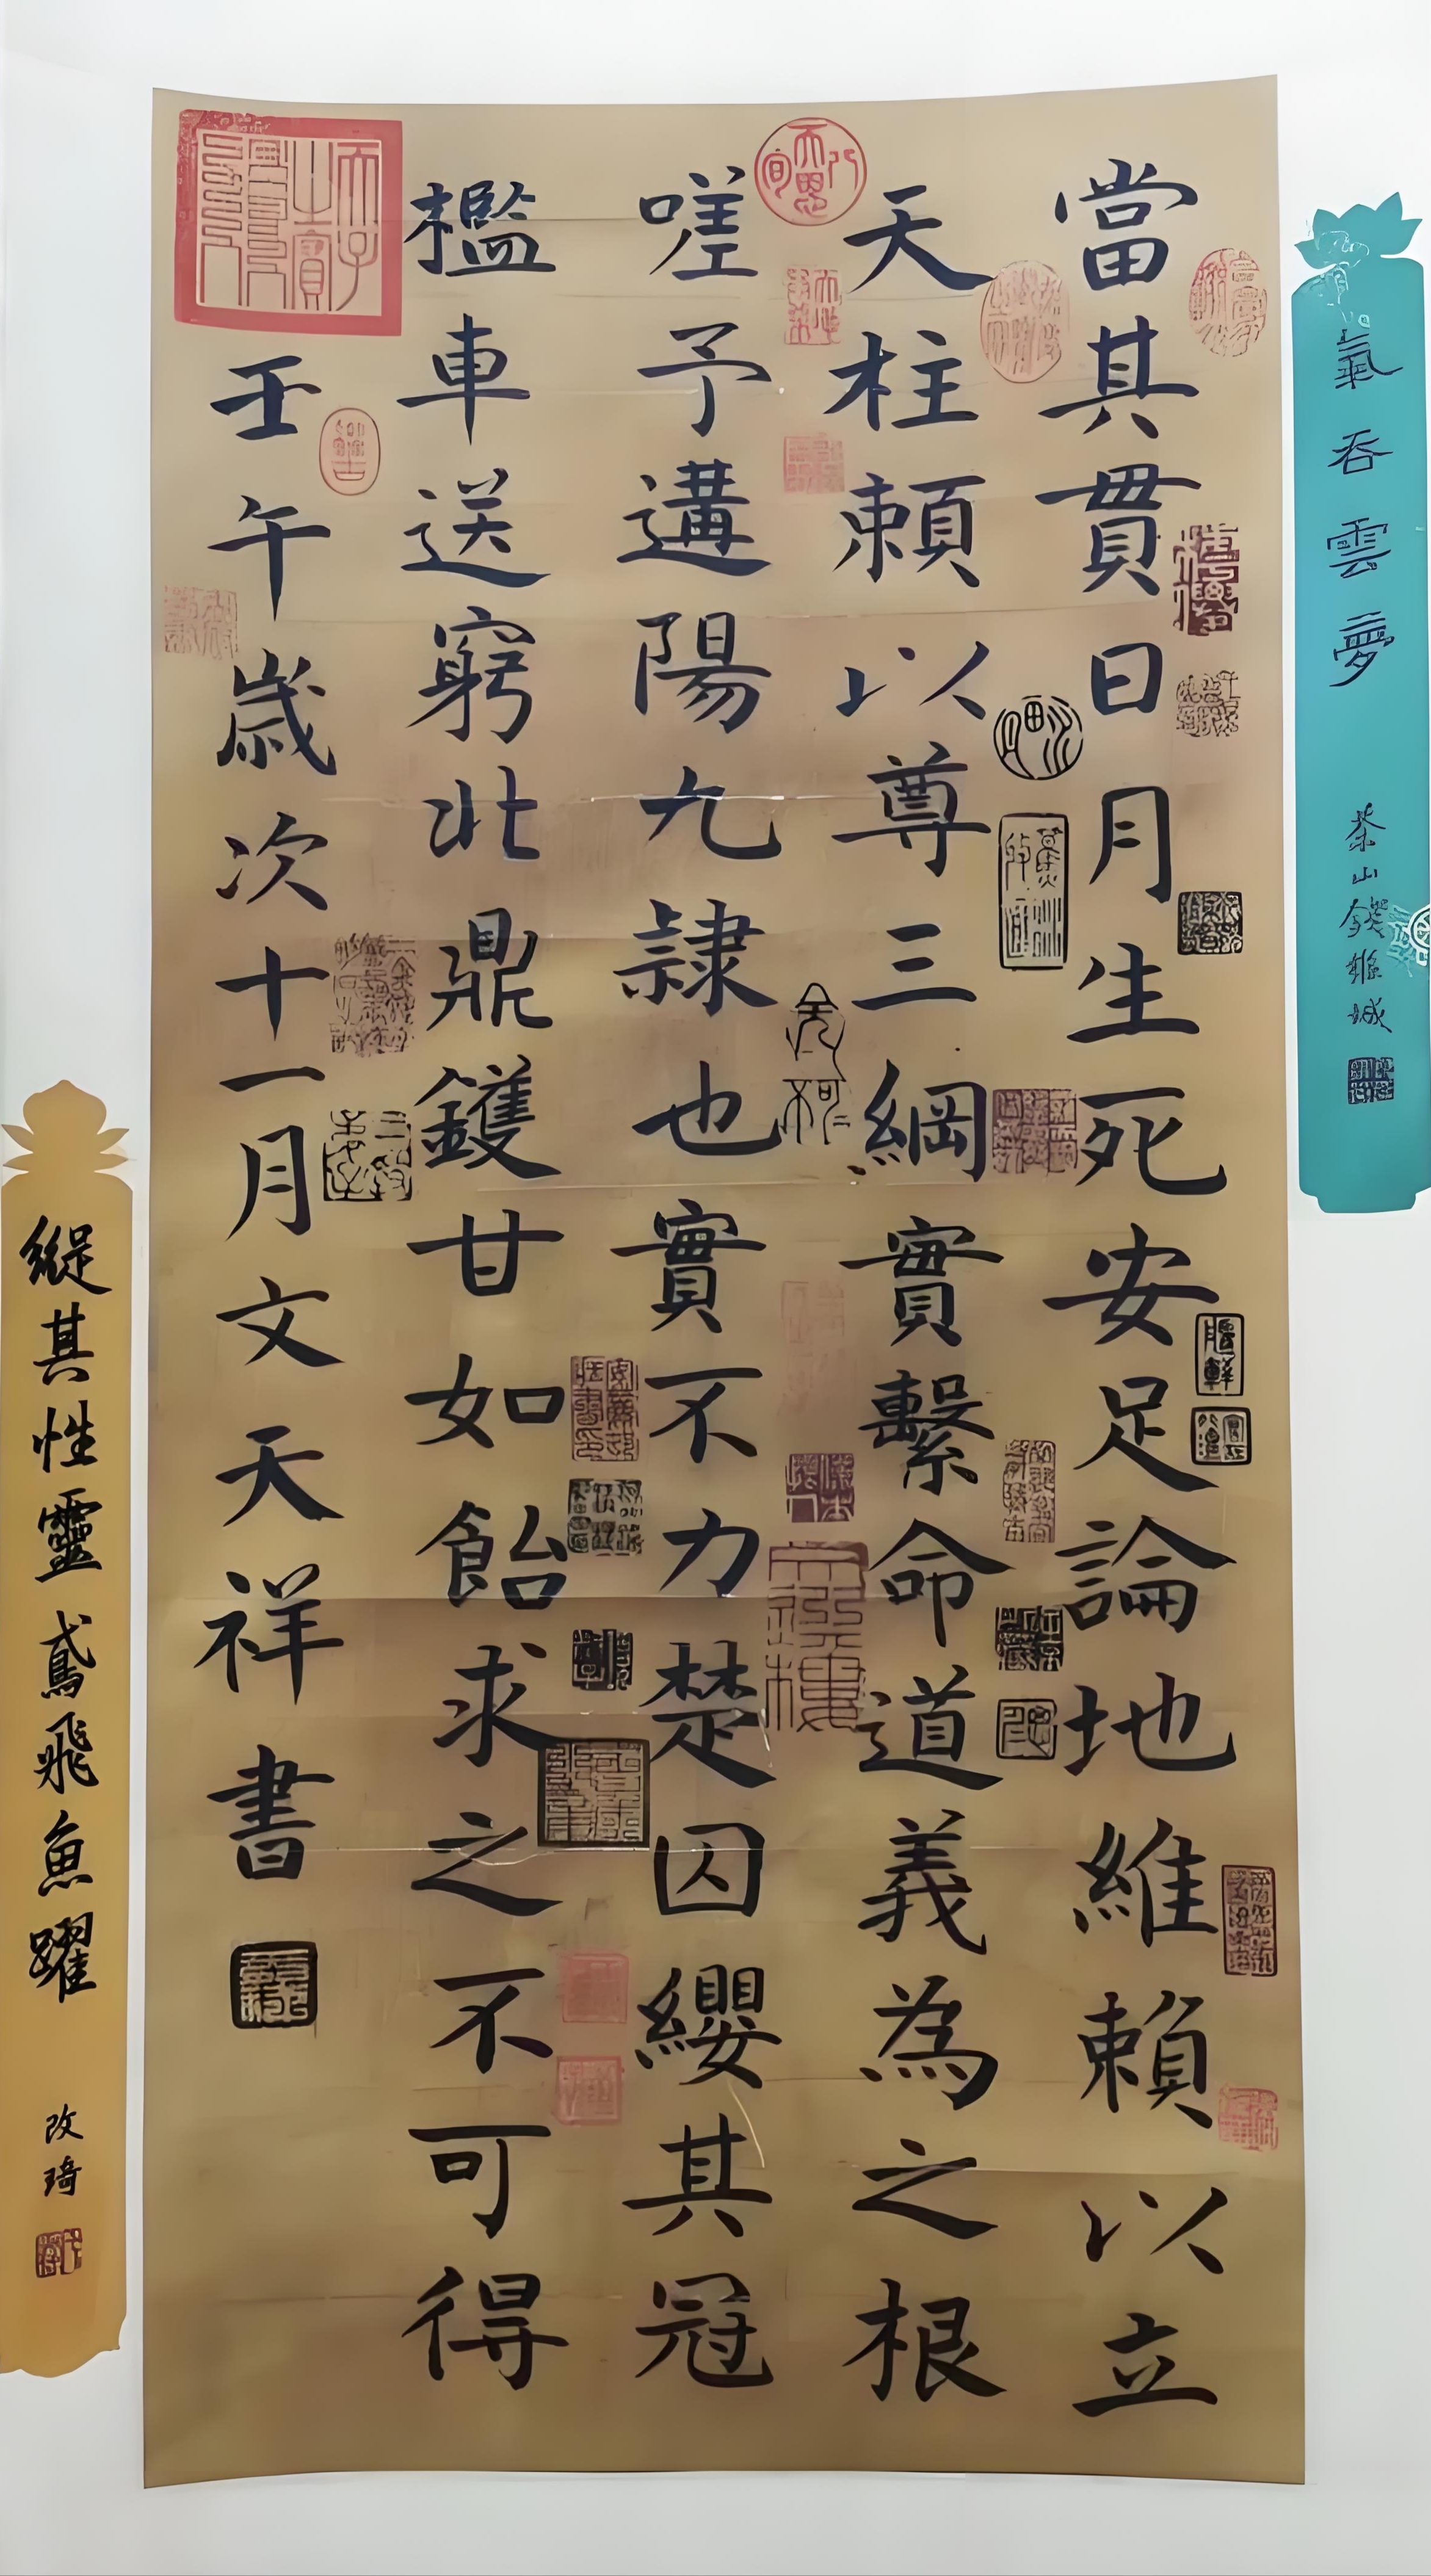 氣吞雲夢
當其貫日月生死安足論地維賴以立
天柱賴以尊三綱實繫命道義為之根
嗟予遘陽九隸也實不力楚囚纓其冠
檻車送窮北鼎鑊甘如飴求之不可得
壬午歲次十一月文天祥書
縱其性靈鳶飛魚躍
改琦